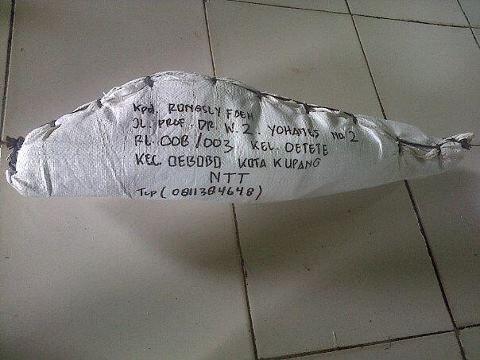 Kpd. RONGSLY FOEH
JL. PROF. DR. W. Z. YOHANES NO 2
Rt. 008/003 KEL. OETETE
KEC. OEBOBO KOTA KUPANG
NTT
TLP ( 0811384648 )